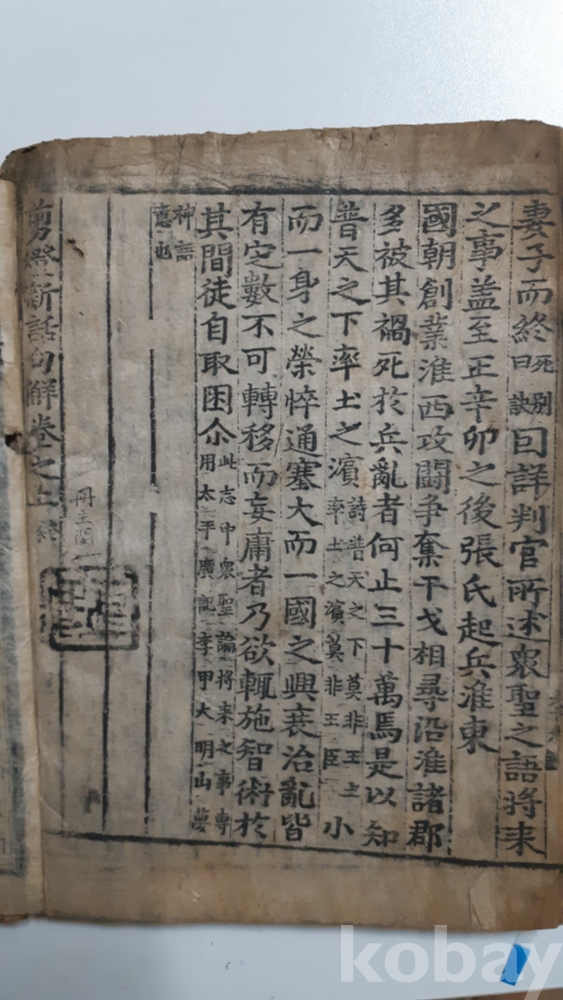 妻子而終死別曰訣回詳判官所述衆聖之語將来
之事盖至正辛卯之後張氏起兵淮東
國朝創業淮西攻鬪争奪干戈相尋沿淮諸郡
多被其禍死於兵亂者何止三十萬焉是以知
普天之下率土之濱詩普天之下莫非王土率土之濱莫非王臣小
而一身之榮悴通塞大而一國之興衰治亂皆
有定數不可轉移而妄庸者乃欲輒施智術於
其間徒自取困尒此志中衆聖論將来之事專用太平廣記李甲大明山夢
神語意也
剪燈新話句解卷之上終
冊主
kobay